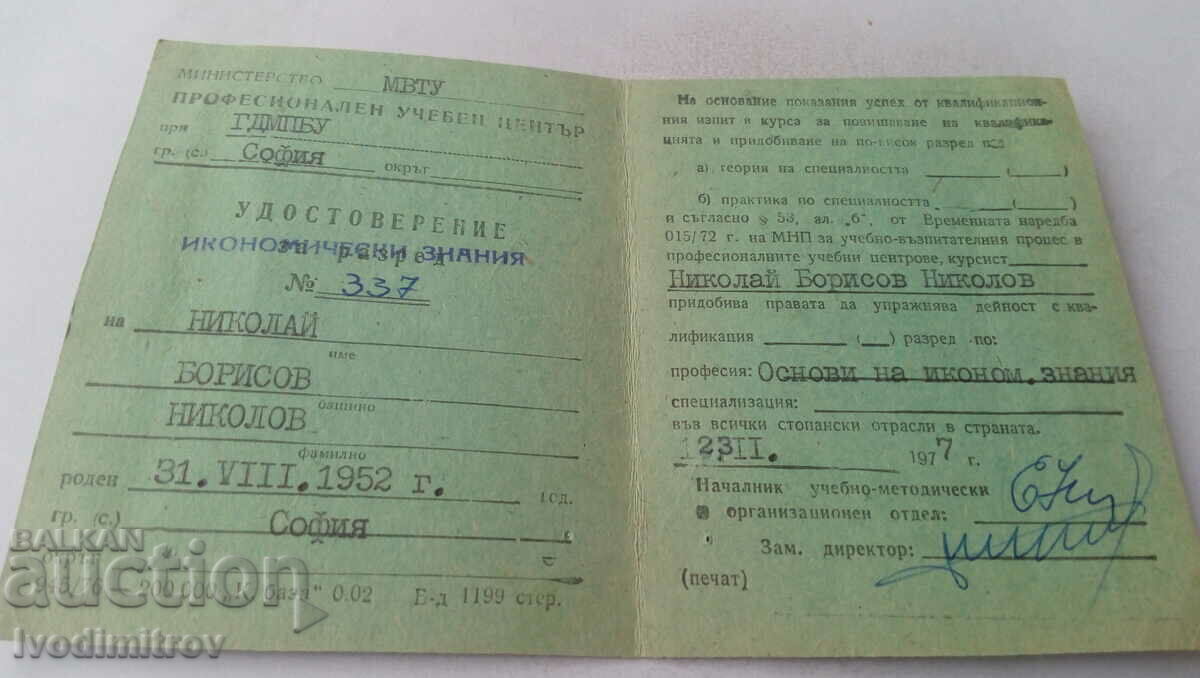 МИНИСТЕРСТВО МВТУ
ПРОФЕСИОНАЛЕН УЧЕБЕН ЦЕНТЪР
при ГДМПБУ
гр. (с.) София окръг
УДОСТОВЕРЕНИЕ
за разред
ИКОНОМИЧЕСКИ ЗНАНИЯ
№ 337
на НИКОЛАЙ
име
БОРИСОВ
бащино
НИКОЛОВ
фамилно
роден 31. VIII. 1952 г. год.
гр. (с.) София
окръг
945/76 — 200 000 „К. база" 0.02 Е-д 1199 стер.
На основание показания успех от квалификацион-
ния изпит в курса за повишаване на квалифика-
цията и придобиване на по-висок разред по:
а) теория на специалността ( )
б) практика по специалността ( )
и съгласно § 53, ал. „б", от Временната наредба
015/72 г. на МНП за учебно-възпитателния процес в
професионалните учебни центрове, курсист
Николай Борисов Николов
придобива правата да упражнява дейност с ква-
лификация ( ) разред по:
професия: Основи на иконом. знания
специализация:
във всички стопански отрасли в страната.
1977 г.
Началник учебно-методически
и организационен отдел:
Зам. директор:
(печат)
BALKAN
auction
Ivodimitrov